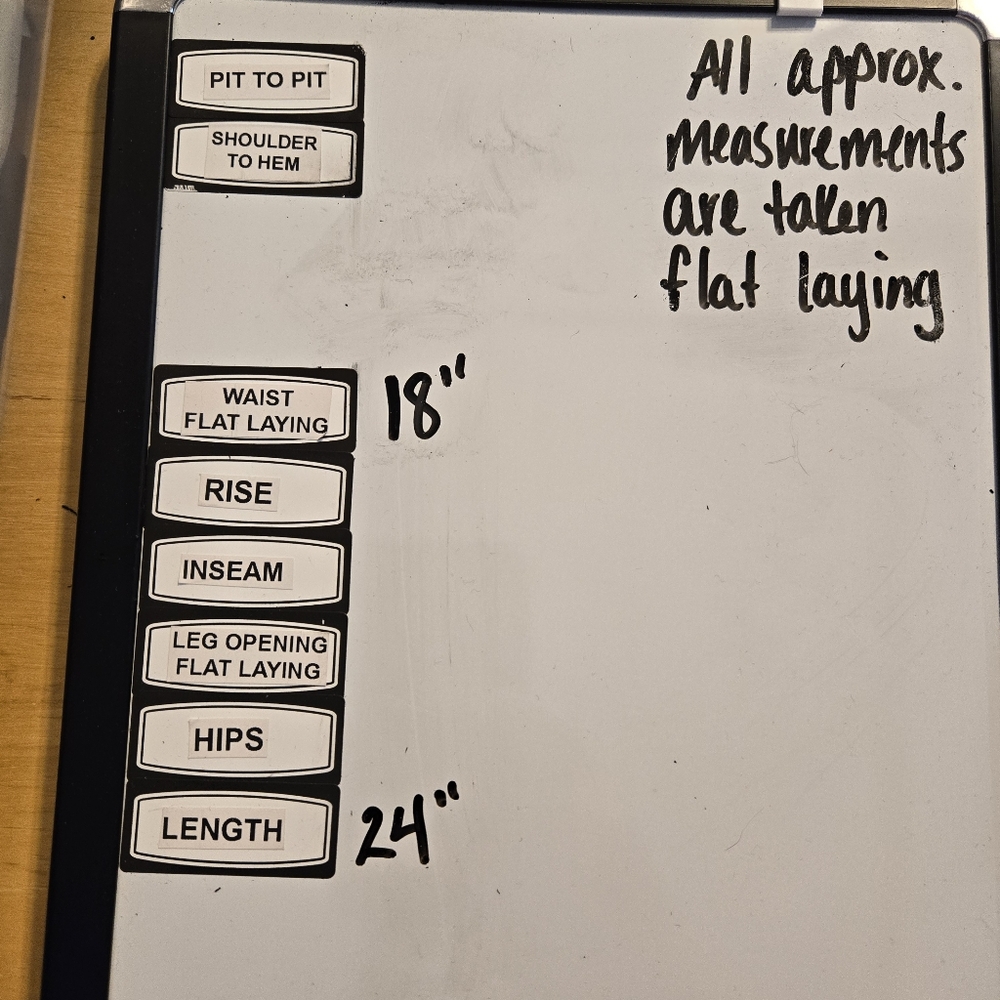 PIT TO PIT
SHOULDER
TO HEM
All approx.
measurements
are taken
flat laying
WAIST
FLAT LAYING
18"
RISE
INSEAM
LEG OPENING
FLAT LAYING
HIPS
LENGTH
24"